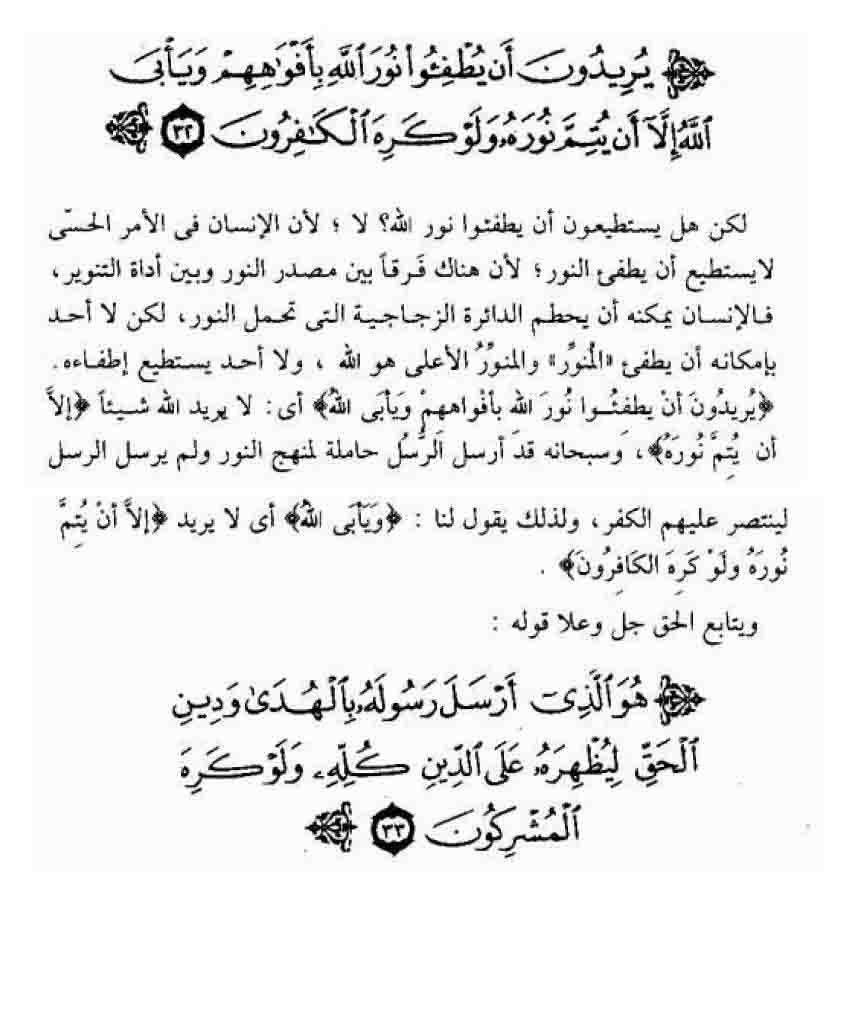 يُرِيدُونَ أَن يُطْفِـُٔوا۟ نُورَ ٱللَّهِ بِأَفْوَٰهِهِمْ وَيَأْبَى
ٱللَّهُ إِلَّآ أَن يُتِمَّ نُورَهُۥ وَلَوْ كَرِهَ ٱلْكَٰفِرُونَ ٣٢
لكن هل يستطيعون أن يطفئوا نور الله؟ لا ؛ لأن الإنسان فى الأمر الحسّى
لايستطيع أن يطفئ النور؛ لأن هناك فَرقاً بين مصدر النور وبين أداة التنوير،
فالإنسان يمكنه أن يحطم الدائرة الزجاجية التى تحمل النور، لكن لا أحد
بإمكانه أن يطفئ «المُنوِّر» والمنوِّرُ الأعلى هو الله ، ولا أحد يستطيع إطفاءه.
﴿يُرِيدُونَ أنْ يطفِئُوا نُورَ الله بأفْواههِمْ وَيأبَى اللهُ﴾ أى: لا يريد الله شيئاً ﴿إلاَّ
أن يُتِمَّ نُورَهُ﴾، وسبحانه قد أرسل الرُّسُل حاملة لمنهج النور ولم يرسل الرسل
لينتصر عليهم الكفر، ولذلك يقول لنا : ﴿وَيَأبَى اللهُ﴾ أى لا يريد ﴿إلاَّ أنْ يُتِمَّ
نُورَهُ ولَوْ كَرِهَ الكَافِرُونَ﴾ .
ويتابع الحق جل وعلا قوله :
هُوَ ٱلَّذِىٓ أَرْسَلَ رَسُولَهُۥ بِٱلْهُدَىٰ وَدِينِ
ٱلْحَقِّ لِيُظْهِرَهُۥ عَلَى ٱلدِّينِ كُلِّهِۦ وَلَوْ كَرِهَ
ٱلْمُشْرِكُونَ ٣٣